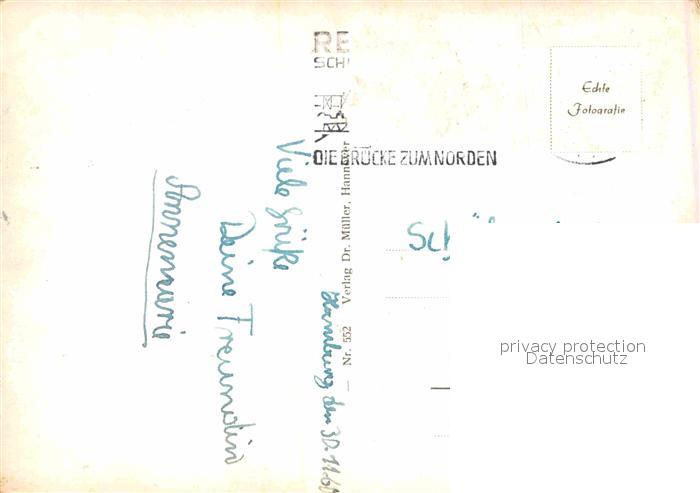 RE
SCH
DIE BRÜCKE ZUM NORDEN
Echte
Fotografie
Hamburg, den 30.11.60
Viele Grüße
Deine Freundin
Annemarie
— Nr. 552 Verlag Dr. Müller, Hannover
Sch
privacy protection
Datenschutz